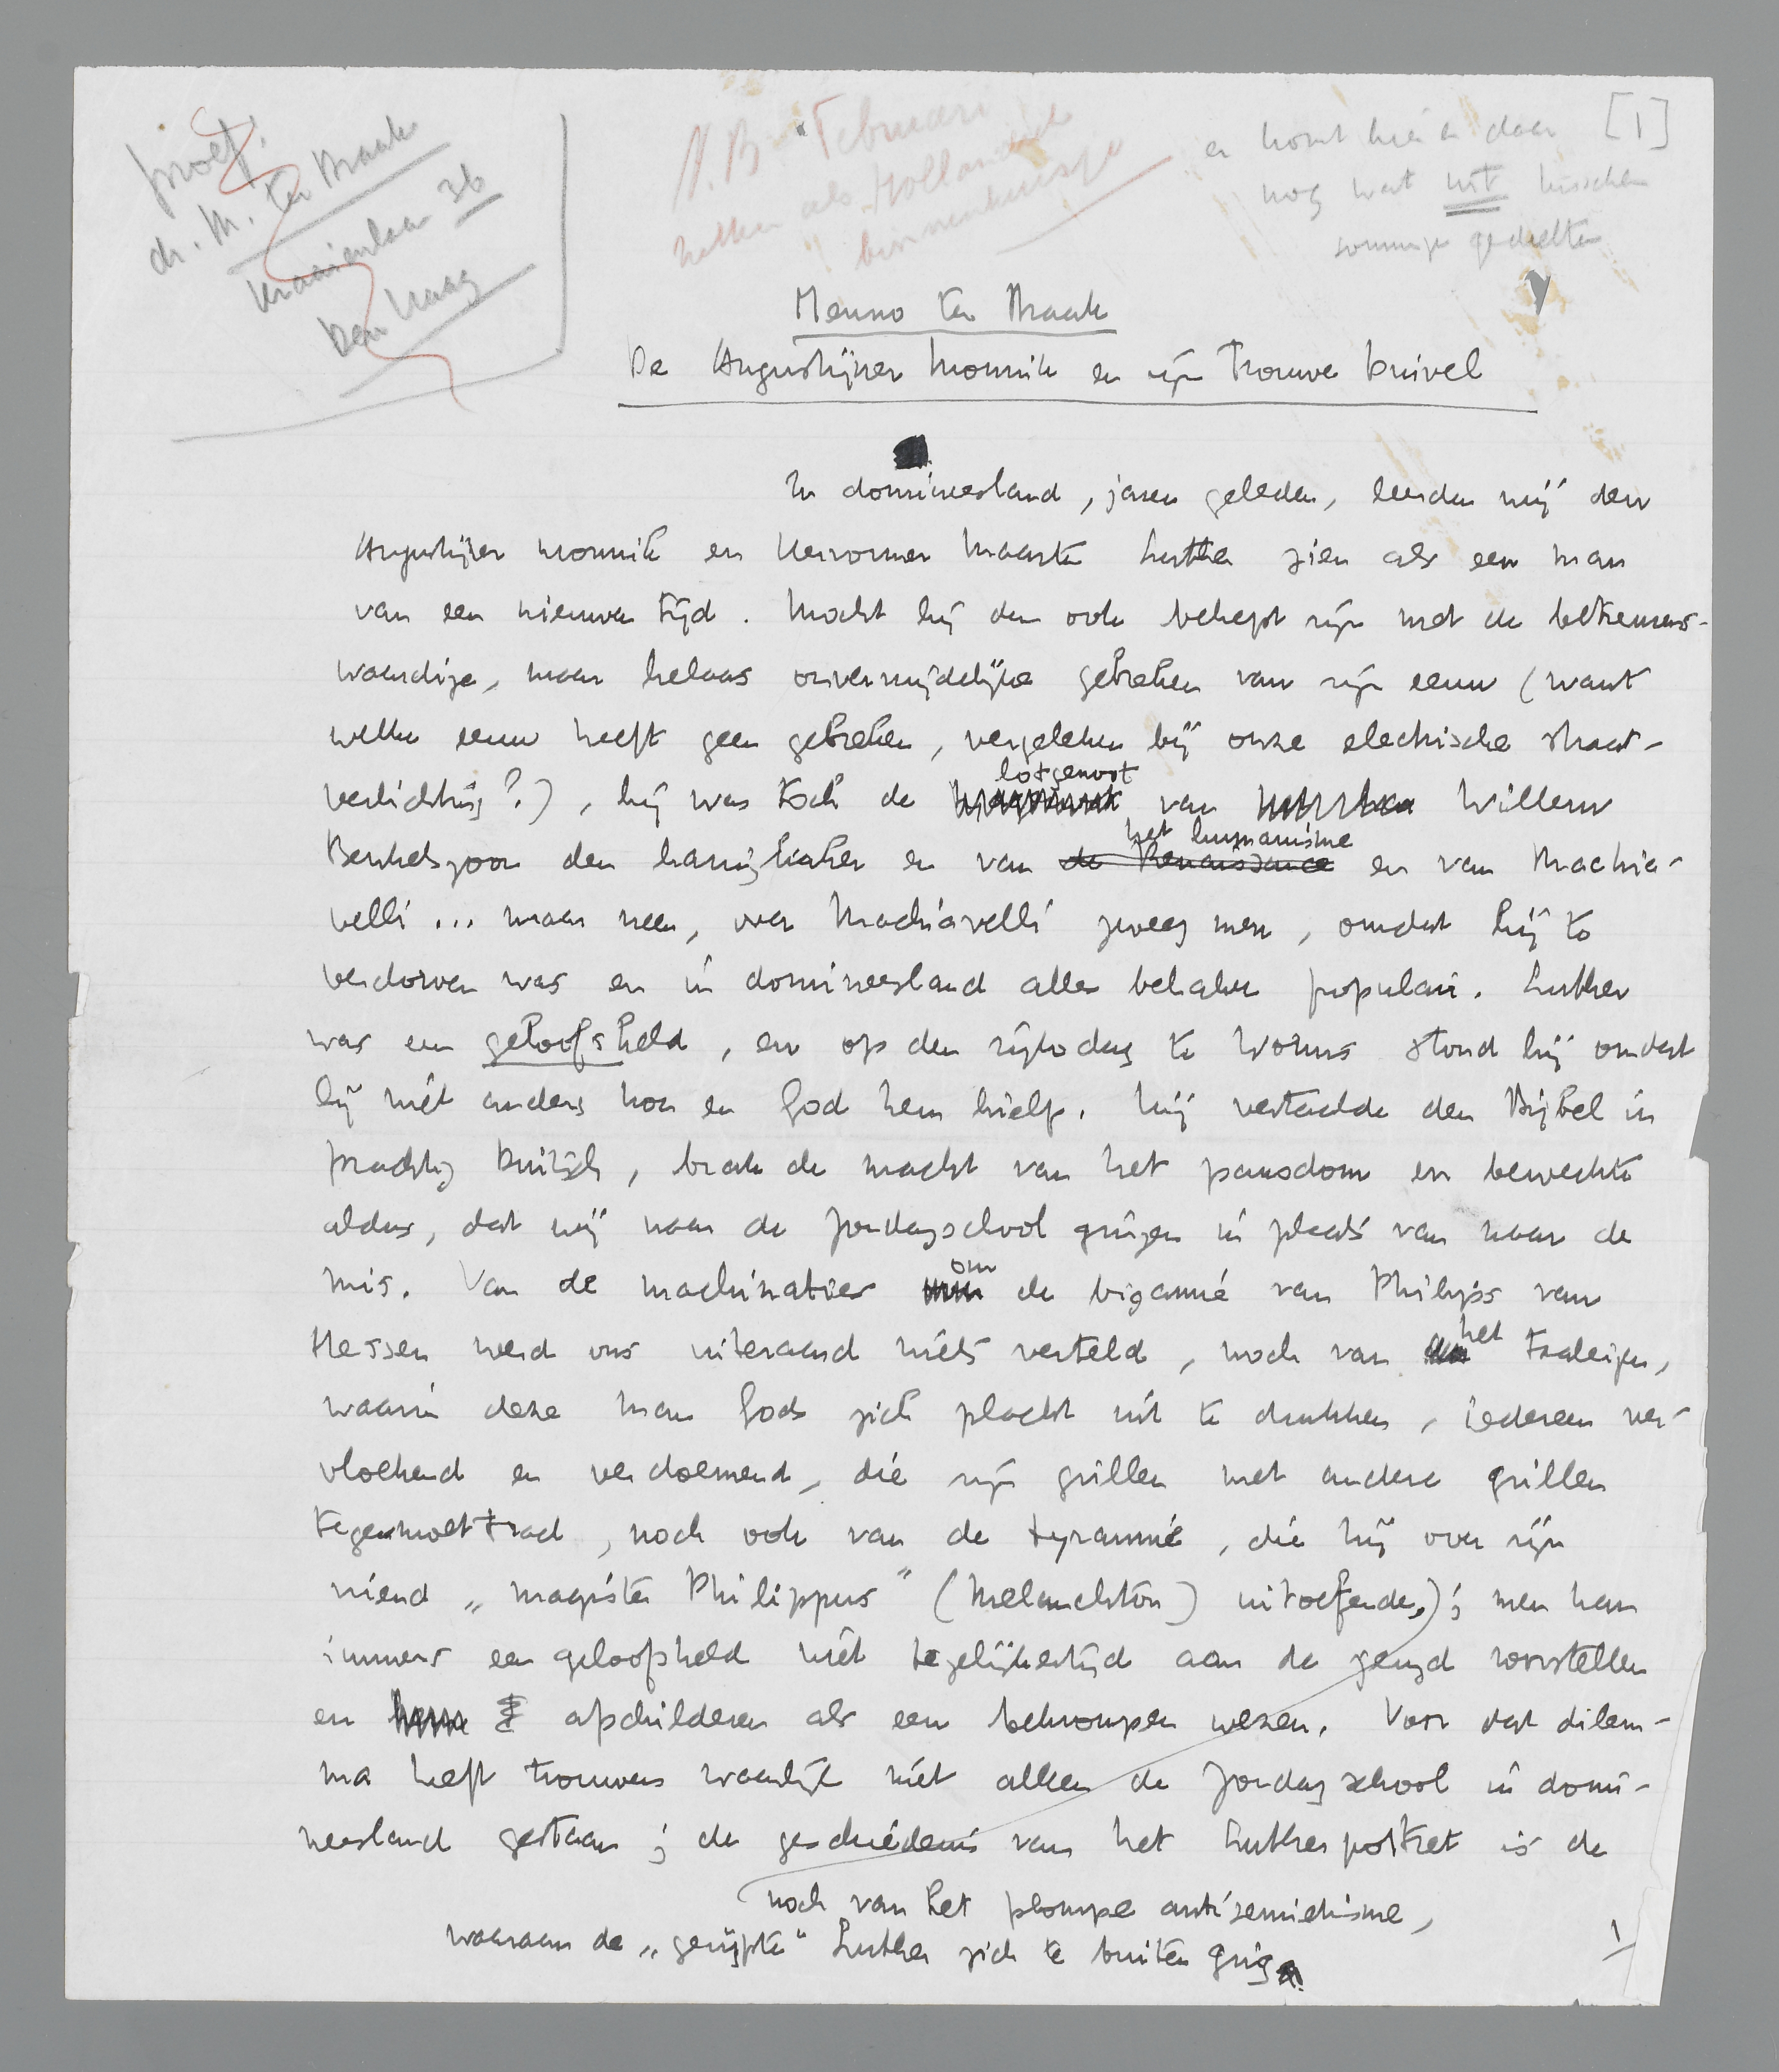 proef.
dr. M. ter Braak
Kraaienlaan 36
Den Haag
N.B. Februari
zetten als Hollandsch
binnenhuisje
er komt hier en daar [1]
nog wat wit tusschen
sommige gedeelten
Menno ter Braak
De Augustijner Monnik en zijn Trouwe Duivel
In domineesland, jaren geleden, leerden wij den
Augustijner monnik en Hervormer Maarten Luther zien als een man
van een nieuwen tijd. Mocht hij dan ook behept zijn met de betreurens-
waardige, maar helaas onvermijdelijke gebreken van zijn eeuw (want
welke eeuw heeft geen gebreken, vergeleken bij onze electrische straat-
verlichting?), hij was toch de lotgenoot van Willem
Beukelszoon den haringkaker en van de Renaissance het humanisme en van Machia-
velli ... maar neen, over Machiavelli zweeg men, omdat hij te
verdorven was en in domineesland alles behalve populair. Luther
was een geloofsheld, en op den rijksdag te Worms stond hij omdat
hij niet anders kon en God hem hielp. Hij vertaalde den Bijbel in
prachtig Duitsch, brak de macht van het pausdom en bewerkte
aldus, dat wij naar de Zondagsschool gingen in plaats van naar de
mis. Van de machinaties om de bigamie van Philips van
Hessen werd ons uiteraard niets verteld, noch van het taaleigen,
waarin deze man Gods zich placht uit te drukken, iedereen ver-
vloekend en verdoemend, die zijn grillen met andere grillen
tegemoet trad, noch ook van de tyrannie, die hij over zijn
vriend „magister Philippus" (Melanchton) uitoefende,); men kan
immers een geloofsheld niet tegelijkertijd aan de jeugd voorstellen
en afschilderen als een bekrompen wezen. Voor dat dilem-
ma heeft trouwens waarlijk niet alleen de Zondagschool in domi-
neesland gestaan; de geschiedenis van het Lutherportret is de
noch van het plompe antisemietisme,
waaraan de „gerijpte" Luther zich te buiten ging
1